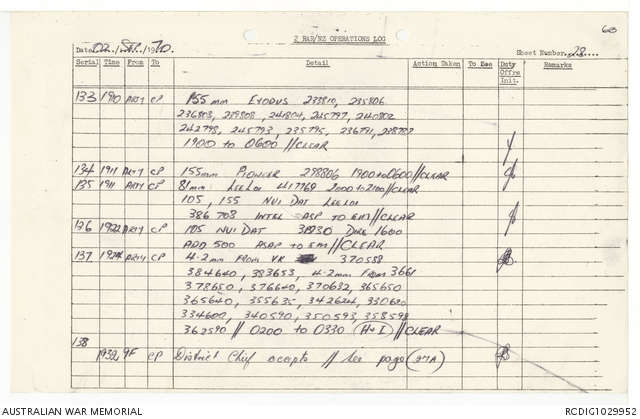 2 RAR/NZ OPERATIONS LOG
63
Date 02 / Sep / 1970.
Sheet Number 28
Serial Time From To Detail Action Taken To Sec Duty Offrs Init. Remarks
133 1910 ARTY CP 155mm EXODUS 233810, 235806
236808, 219808, 241804, 245797, 240802
242798, 245793, 235795, 236791, 238787
1900 to 0600 // CLEAR
134 1911 ARTY CP 155mm PIONEER 298806 1900 to 0600 // CLEAR
135 1911 ARTY CP 81mm LELOI 417769 2000 to 2100 // CLEAR
105, 155 NUI DAT LELOI
386708 INTEL ASP TO 8M // CLEAR
136 1922 ARTY CP 105 NUI DAT DIRE 1600
ADD 500 ASAP to 8M // CLEAR
137 1924 ARTY CP 4.2mm FROM VK 370588
384640, 383653, 4.2mm FROM 3661
378650, 376640, 370632, 365650
365640, 355635, 342624, 330620
334600, 340590, 350593, 358598
362590 // 0200 to 0330 (H & I) // CLEAR
138
1932 9F CP District Chief accepts // See page (27A)
AUSTRALIAN WAR MEMORIAL
RCDIG1029952